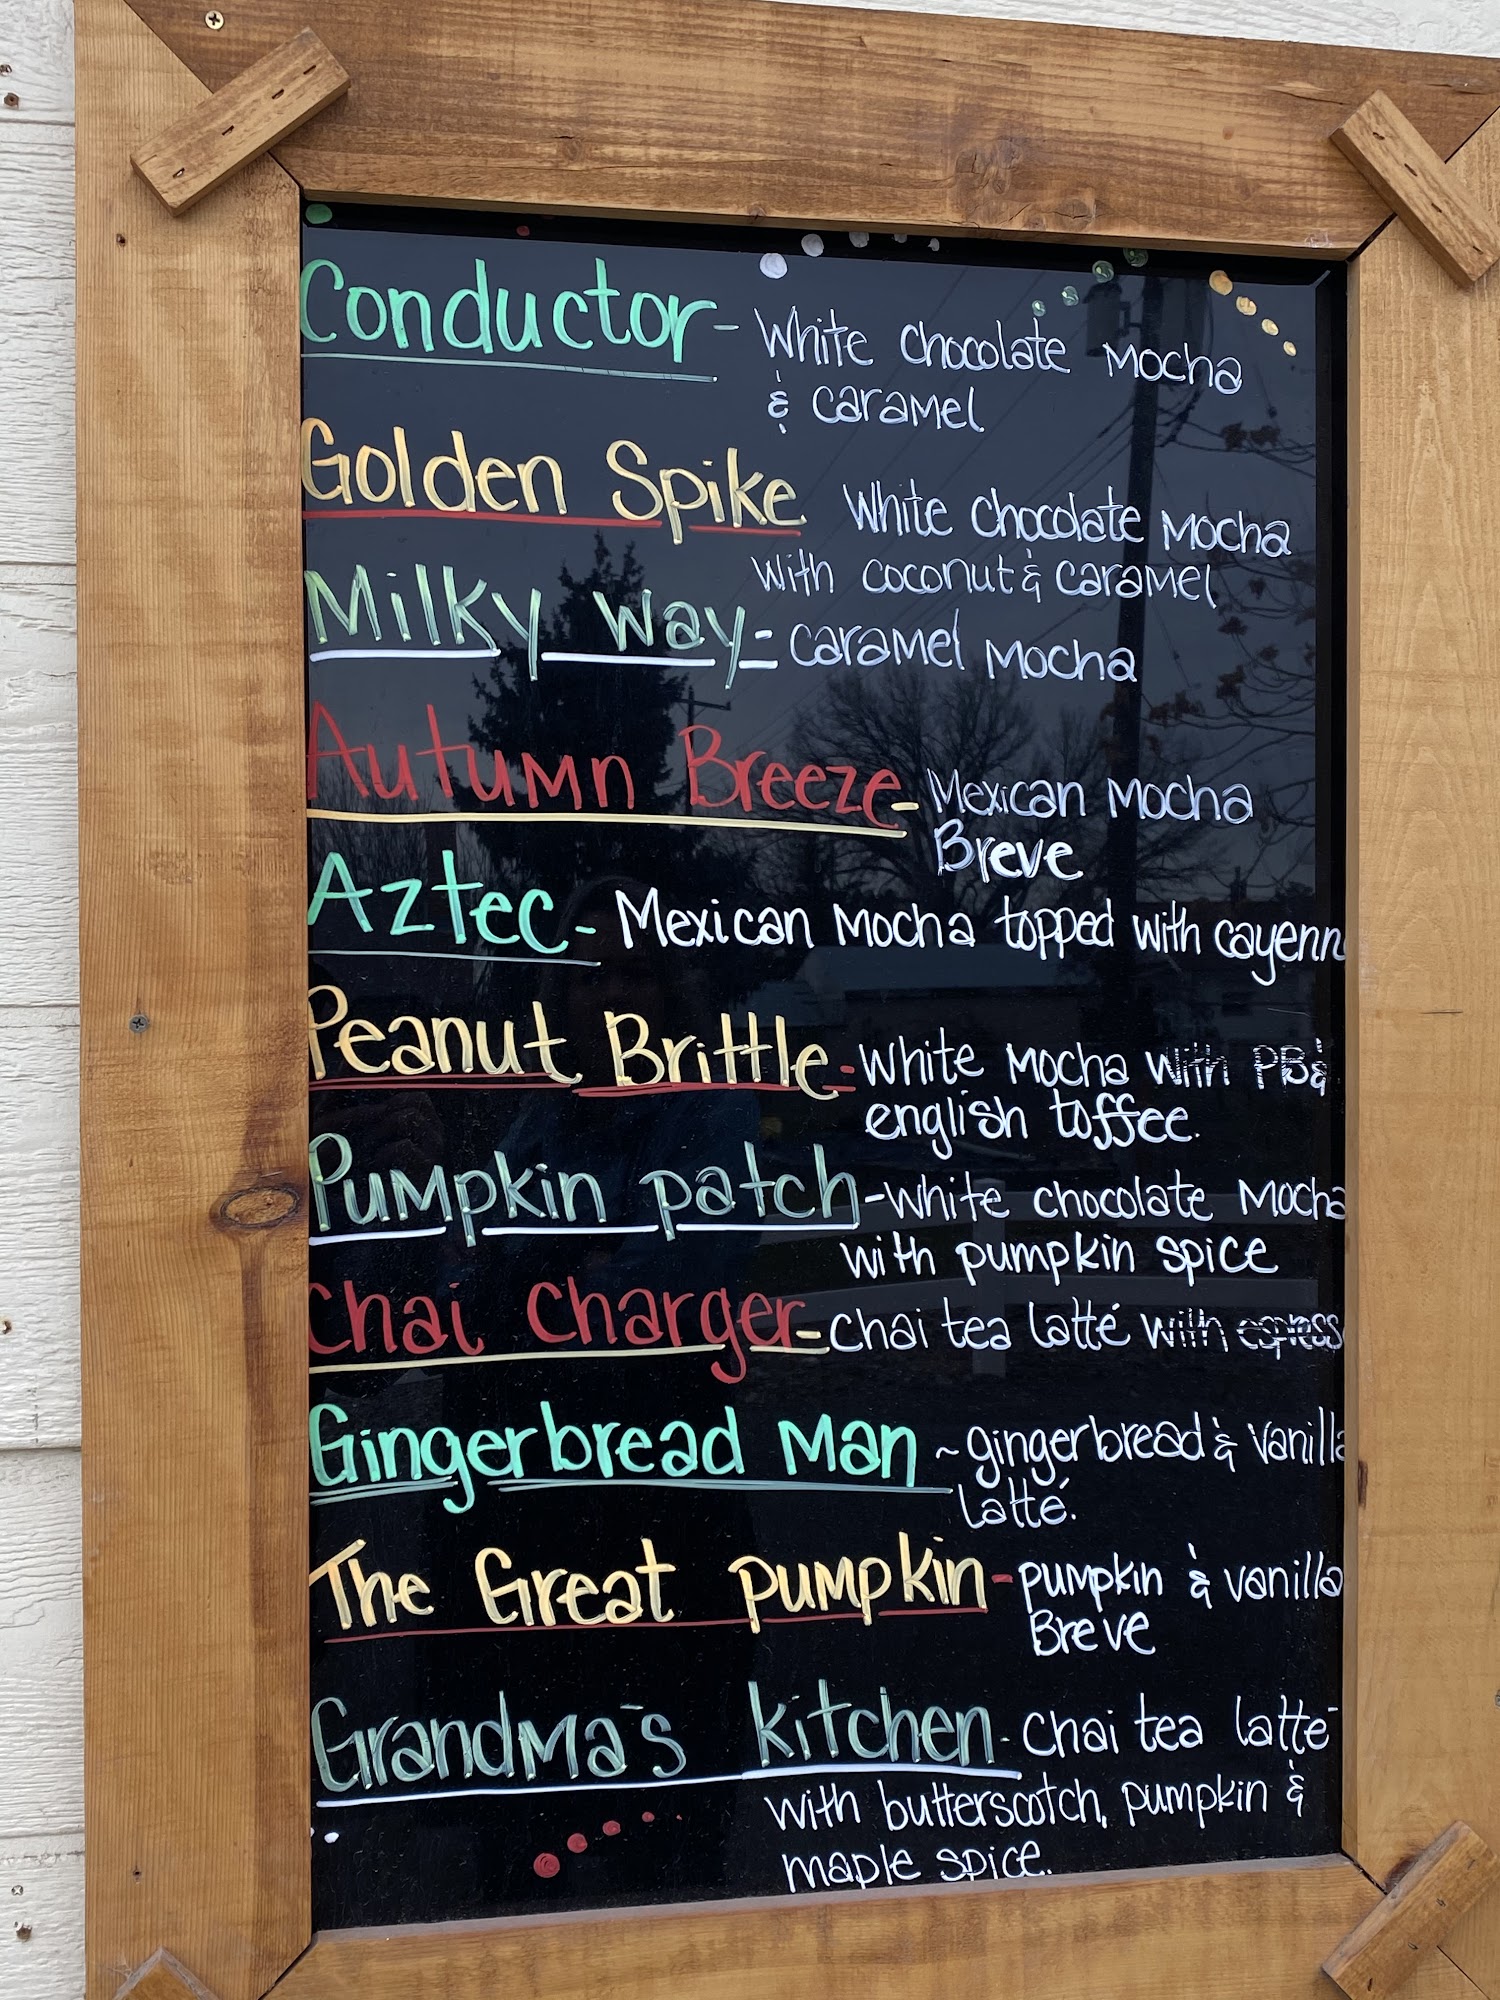 Conductor - White Chocolate Mocha
& caramel
Golden Spike White Chocolate Mocha
with coconut & caramel
Milky Way - caramel Mocha
Autumn Breeze - Mexican Mocha
Breve
Aztec - Mexican Mocha topped with cayenn
Peanut Brittle - White Mocha with PB &
english toffee.
Pumpkin patch - White chocolate Mocha
with pumpkin spice
Chai Charger - Chai tea latté with espress
Gingerbread Man ~ gingerbread & vanilla
latté.
The Great pumpkin - pumpkin & vanilla
Breve
Grandma's kitchen - Chai tea latté
with butterscotch, pumpkin &
maple spice.